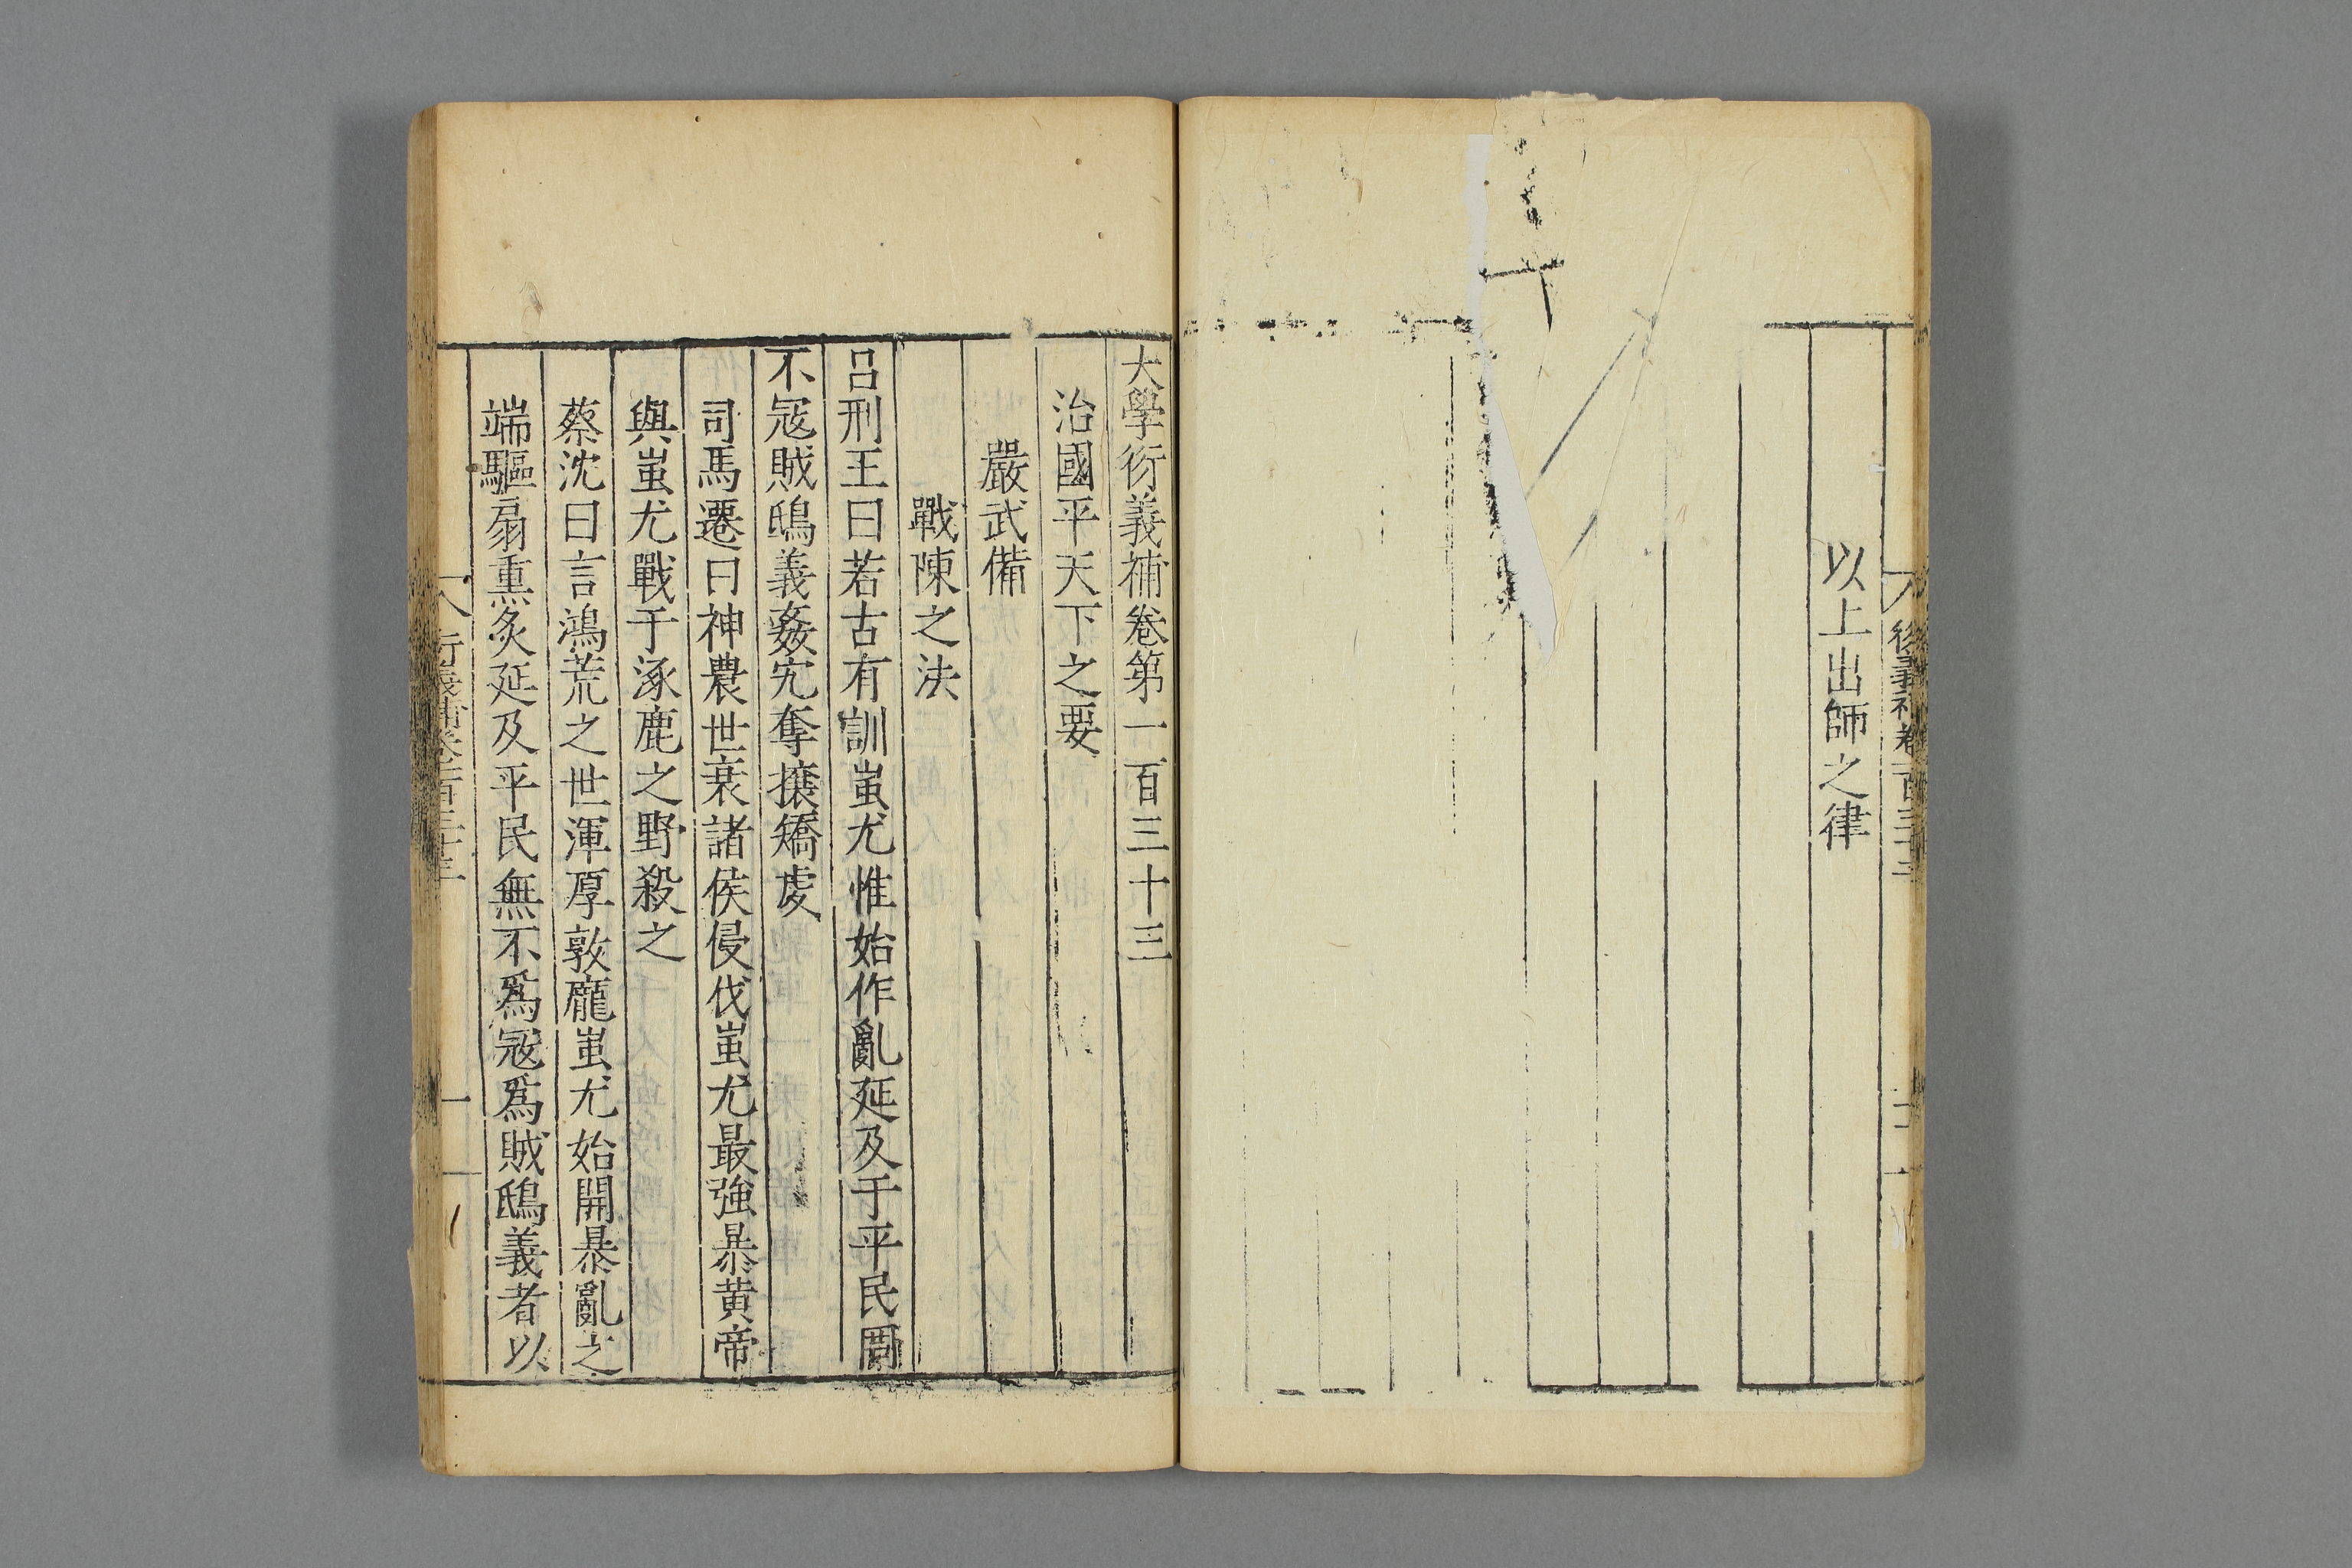 以上出師之律
大學衍義補卷第一百三十三
治國平天下之要
嚴武備
戰陳之法
呂刑王曰若古有訓蚩尤惟始作亂延及于平民罔
不冦賊鴟義姦宄奪攘矯虔
司馬遷曰神農世衰諸侯侵伐蚩尤最強暴黃帝
與蚩尤戰于涿鹿之野殺之
蔡沈曰言鴻荒之世渾厚敦龎蚩尤始開暴亂之
端驅扇熏炙延及平民無不爲冦爲賊鴟義者以